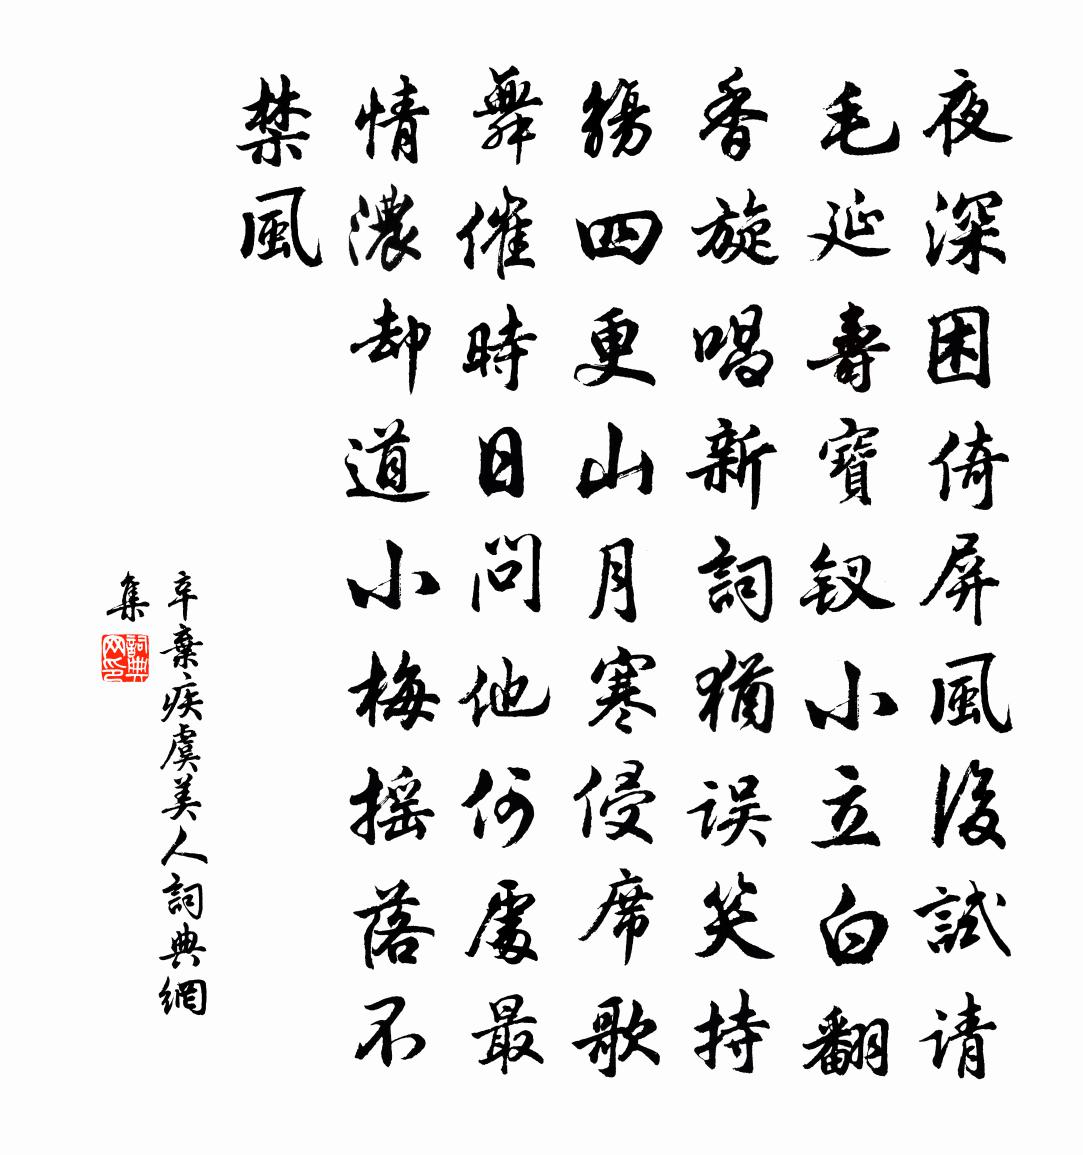 夜深困倚屏風後試请
毛延壽寶钗小立白翻
香旋唱新詞猶误笑持
觴四更山月寒侵席歌
舞催時日問他何處最
情濃却道小梅摇落不
禁風
辛棄疾虞美人詞典網
集
詞典
网印